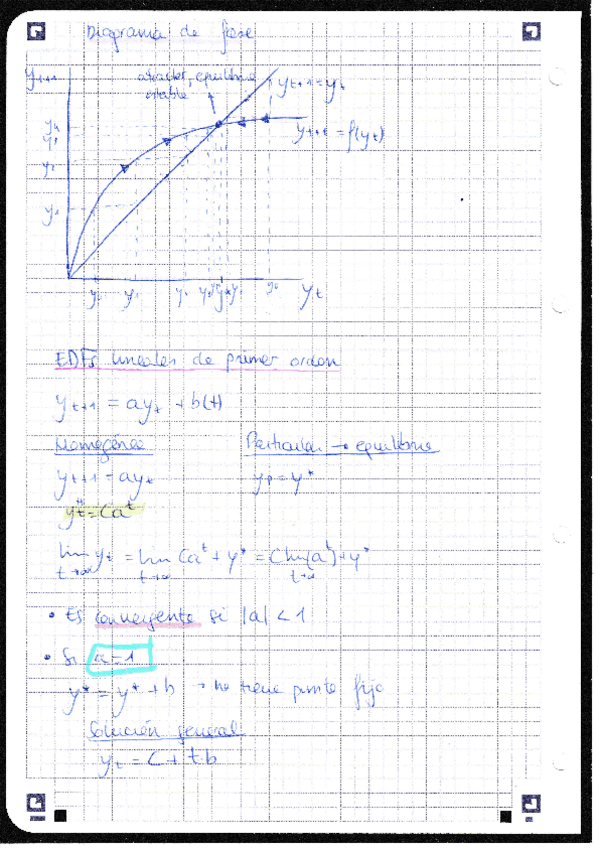 Diagrama de fase
y_{t+1}
atractor, equilibrio
estable
y_{t+1} = y_t
y_{t+1} = f(y_t)
y_t
EDFs lineales de primer orden
y_{t+1} = ay_t + b(t)
Homogénea
Particular → equilibrio
y_{t+1} = ay_t
y_p = y*
y_t^H = Ca^t
lim_{t→∞} y_t = lim_{t→∞} Ca^t + y* = C lim_{t→∞} (a^t) + y*
• Es convergente si |a| < 1
• Si a=1
y* = y* + b → no tiene punto fijo
Solución general
y_t = C + t·b